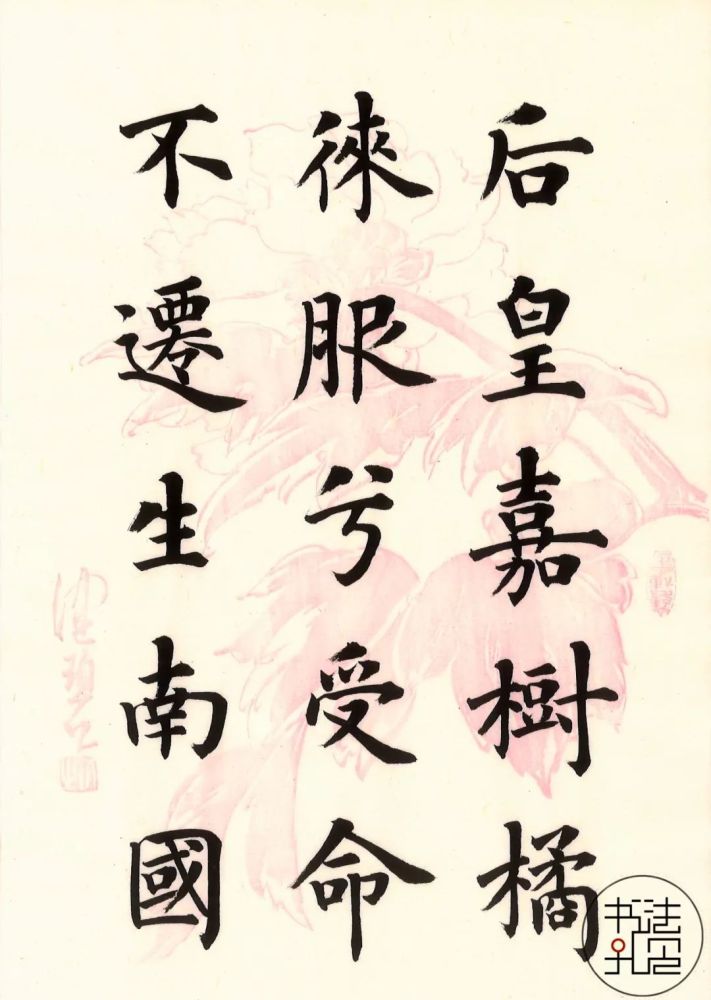 后皇嘉樹橘
徠服兮受命
不遷生南國
书法孔空